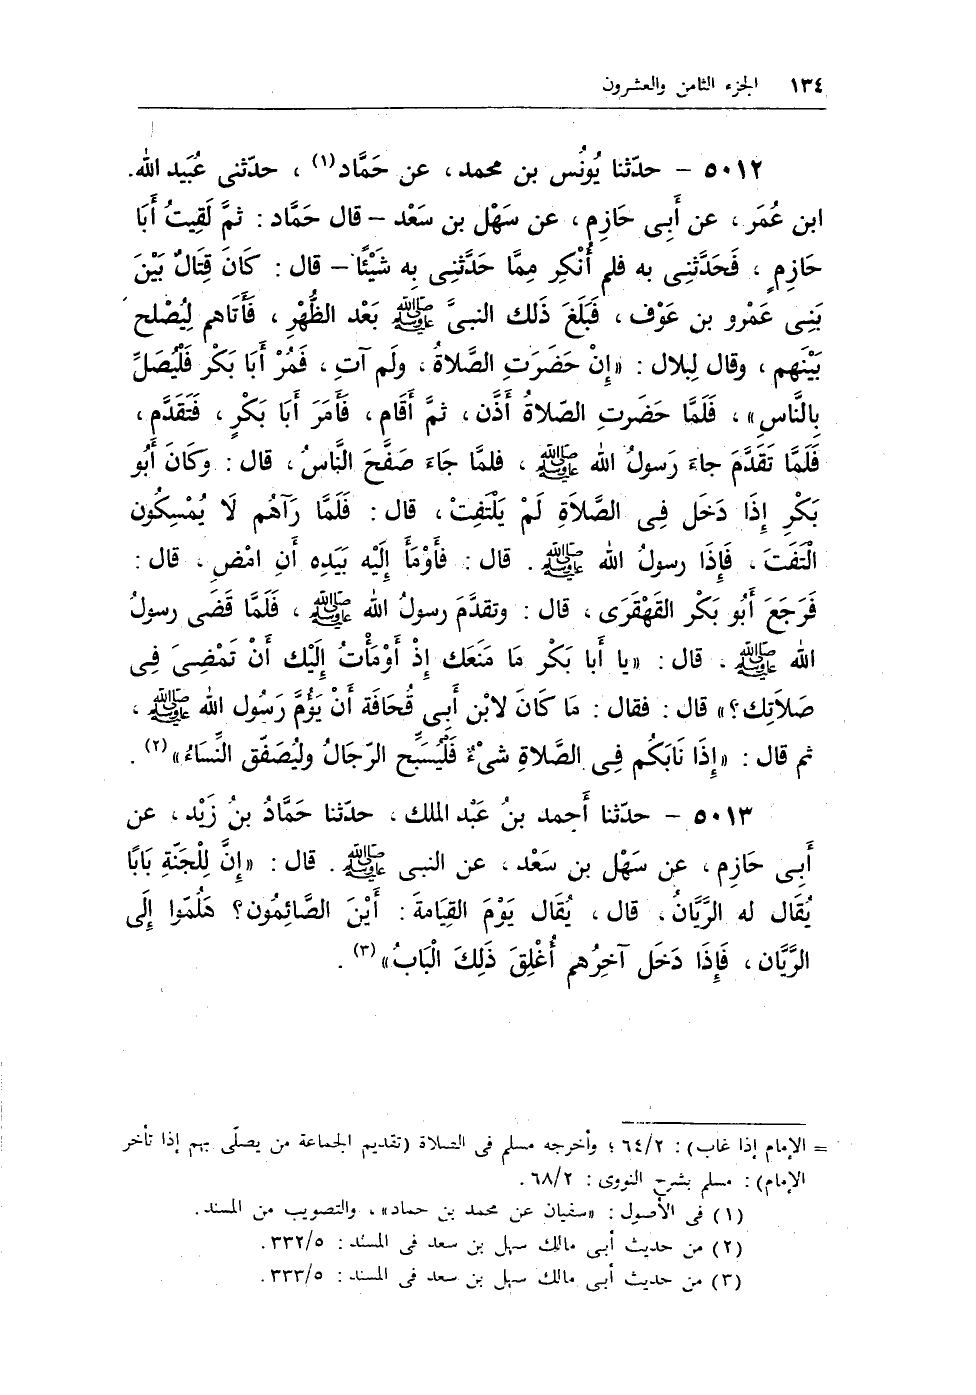 ١٣٤ الجزء الثامن والعشرون
٥٠١٢ - حدّثنا يُونُس بن محمد، عن حَمَّاد(١)، حدّثنى عُبَيد الله.
ابن عُمَر، عن أَبِى حَازِم، عن سَهْل بن سَعْد - قال حَمَّاد: ثمَّ لَقِيتُ أَبَا
حَازِمٍ، فَحَدَّثَنِى به فلم أُنْكِر مِمَّا حَدَّثَنِى به شَيْئًا - قال: كَانَ قِتَالٌ بَيْنَ
بَنِى عَمْرو بن عَوْف، فَبَلَغَ ذَلك النبىَّ ﷺ بَعْد الظُّهْرِ، فَأَتَاهم لِيُصْلح
بَيْنَهم، وقال لِبلال: «إِنْ حَضَرَتِ الصَّلاةُ، ولَم آتِ، فَمُرْ أَبَا بَكْر فَلْيُصَلِّ
بِالنَّاسِ»، فَلَمَّا حَضَرتِ الصَّلاةُ أَذَّن، ثمَّ أَقَام، فَأَمَرَ أَبَا بَكْرٍ، فَتَقَدَّم،
فَلَمَّا تَقَدَّمَ جاءَ رَسولُ الله ﷺ، فلمَّا جَاءَ صَفَّحَ النَّاسُ، قال: وكَانَ أَبُو
بَكْرِ إِذَا دَخَل فِى الصَّلاَةِ لَمْ يَلْتَفِتْ، قال: فَلَمَّا رَآهُم لَا يُمْسِكُون
الْتَفَتَ، فَإِذَا رسولُ الله ﷺ. قال: فَأَوْمَأَ إِلَيْه بَيَدِه أَنِ امْضِ، قال:
فَرَجَعَ أَبُو بَكْر القَهْقَرَى، قال: وتقدَّمَ رسولُ الله ﷺ، فَلَمَّا قَضَى رسولُ
الله ﷺ. قال: «يا أَبا بَكْر مَا مَنَعَك إِذْ أَوْمَأْتُ إِلَيْك أَنْ تَمْضِىَ فِى
صَلاَتِك؟» قال: فقال: مَا كَانَ لابْن أَبِى قُحَافَة أَنْ يَؤُمَّ رَسُول الله ﷺ،
ثم قال: «إِذَا نَابَكُم فِى الصَّلاةِ شىْءٌ فَلْيُسَبِّح الرّجَالُ وليُصَفّق النِّسَاءُ»(٢).
٥٠١٣ - حدّثنا أَحمد بنُ عَبْد الملك، حدّثنا حَمَّادُ بنُ زَيْد، عن
أَبِى حَازِم، عن سَهْل بن سَعْد، عن النبى ﷺ. قال: «إِنَّ لِلْجَنَّةِ بَابًا
يُقَال له الرَّيَّانُ، قال، يُقَال يَوْمَ القِيَامةَ: أَيْنَ الصَّائِمُون؟ هَلُمّوا إِلَى
الرَّيَّان، فَإِذَا دَخَل آخِرُهم أُغْلِقَ ذَلِكَ الْبَابُ»(٣).
= الإمام إذا غاب): ٦٤/٢؛ وأخرجه مسلم فى الصلاة (تقديم الجماعة من يصلّى بهم إذا تأخر
الإمام): مسلم بشرح النووى: ٦٨/٢.
(١) فى الأصول: «سفيان عن محمد بن حماد»، والتصويب من المسند.
(٢) من حديث أبى مالك سهل بن سعد فى المسند: ٣٣٢/٥.
(٣) من حديث أبى مالك سهل بن سعد فى المسند: ٣٣٣/٥.